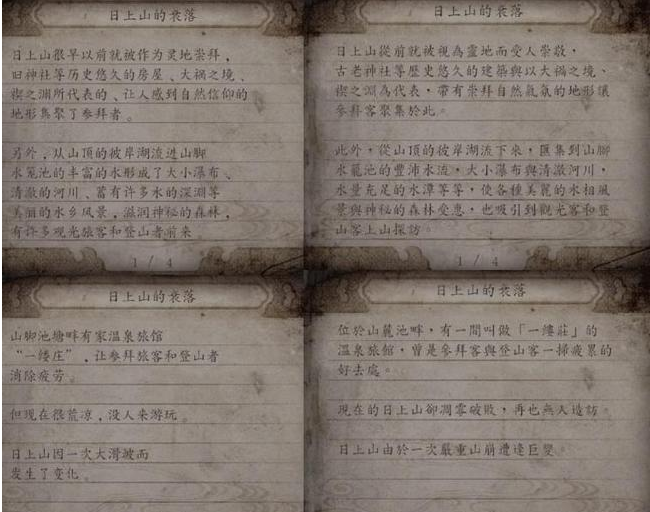 日上山的衰落
日上山很早以前就被作为灵地崇拜，
旧神社等历史悠久的房屋、大祸之境、
禊之渊所代表的、让人感到自然信仰的
地形集聚了参拜者。
另外，从山顶的彼岸湖流进山脚
水笼池的丰富的水形成了大小瀑布、
清澈的河川、蓄有许多水的深渊等
美丽的水乡风景，滋润神秘的森林，
有许多观光旅客和登山者前来
1 / 4
日上山的衰落
日上山從前就被視為靈地而受人崇敬，
古老神社等歷史悠久的建築與以大禍之境、
禊之淵為代表，帶有崇拜自然氣氛的地形讓
參拜客聚集於此。
此外，從山頂的彼岸湖流下來，匯集到山腳
水籠池的豐沛水流，大小瀑布與清澈河川，
水量充足的水潭等等，使各種美麗的水相風
景與神秘的森林受惠，也吸引到觀光客和登
山客上山探訪。
1 / 4
日上山的衰落
山脚池塘畔有家温泉旅馆
“一缕庄”，让参拜旅客和登山者
消除疲劳。
但现在很荒凉，没人来游玩。
日上山因一次大滑坡而
发生了变化。
日上山的衰落
位於山麓池畔，有一間叫做「一縷莊」的
溫泉旅館，曾是參拜客與登山客一掃疲累的
好去處。
現在的日上山卻凋零破敗，再也無人造訪。
日上山由於一次嚴重山崩遭逢巨變。